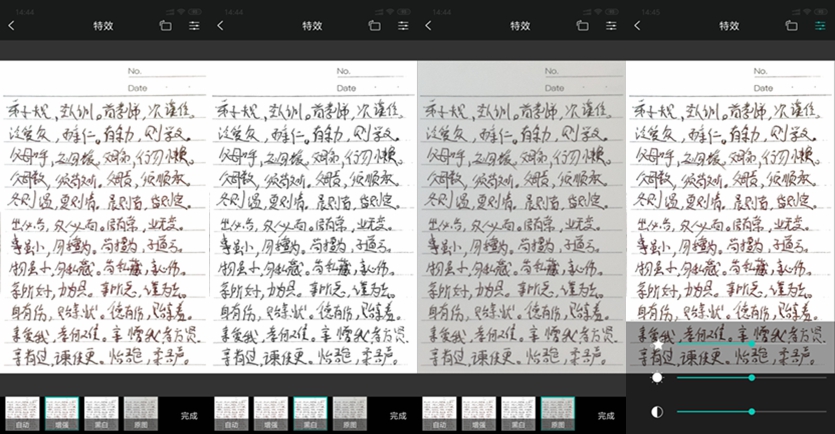 14:44
特效
No.
Date
弟子规，圣人训。首孝悌，次谨信。
泛爱众，而亲仁。有余力，则学文。
父母呼，应勿缓。父母命，行勿懒。
父母教，须敬听。父母责，须顺承。
冬则温，夏则凊。晨则省，昏则定。
出必告，反必面。居有常，业无变。
事虽小，勿擅为。苟擅为，子道亏。
物虽小，勿私藏。苟私藏，亲心伤。
亲所好，力为具。亲所恶，谨为去。
身有伤，贻亲忧。德有伤，贻亲羞。
亲爱我，孝何难。亲憎我，孝方贤。
亲有过，谏使更。怡吾色，柔吾声。
自动 增强 黑白 原图 完成
14:44
特效
No.
Date
弟子规，圣人训。首孝悌，次谨信。
泛爱众，而亲仁。有余力，则学文。
父母呼，应勿缓。父母命，行勿懒。
父母教，须敬听。父母责，须顺承。
冬则温，夏则凊。晨则省，昏则定。
出必告，反必面。居有常，业无变。
事虽小，勿擅为。苟擅为，子道亏。
物虽小，勿私藏。苟私藏，亲心伤。
亲所好，力为具。亲所恶，谨为去。
身有伤，贻亲忧。德有伤，贻亲羞。
亲爱我，孝何难。亲憎我，孝方贤。
亲有过，谏使更。怡吾色，柔吾声。
自动 增强 黑白 原图 完成
14:44
特效
No.
Date
弟子规，圣人训。首孝悌，次谨信。
泛爱众，而亲仁。有余力，则学文。
父母呼，应勿缓。父母命，行勿懒。
父母教，须敬听。父母责，须顺承。
冬则温，夏则凊。晨则省，昏则定。
出必告，反必面。居有常，业无变。
事虽小，勿擅为。苟擅为，子道亏。
物虽小，勿私藏。苟私藏，亲心伤。
亲所好，力为具。亲所恶，谨为去。
身有伤，贻亲忧。德有伤，贻亲羞。
亲爱我，孝何难。亲憎我，孝方贤。
亲有过，谏使更。怡吾色，柔吾声。
自动 增强 黑白 原图 完成
14:45
特效
No.
Date
弟子规，圣人训。首孝悌，次谨信。
泛爱众，而亲仁。有余力，则学文。
父母呼，应勿缓。父母命，行勿懒。
父母教，须敬听。父母责，须顺承。
冬则温，夏则凊。晨则省，昏则定。
出必告，反必面。居有常，业无变。
事虽小，勿擅为。苟擅为，子道亏。
物虽小，勿私藏。苟私藏，亲心伤。
亲所好，力为具。亲所恶，谨为去。
身有伤，贻亲忧。德有伤，贻亲羞。
亲爱我，孝何难。亲憎我，孝方贤。
亲有过，谏使更。怡吾色，柔吾声。